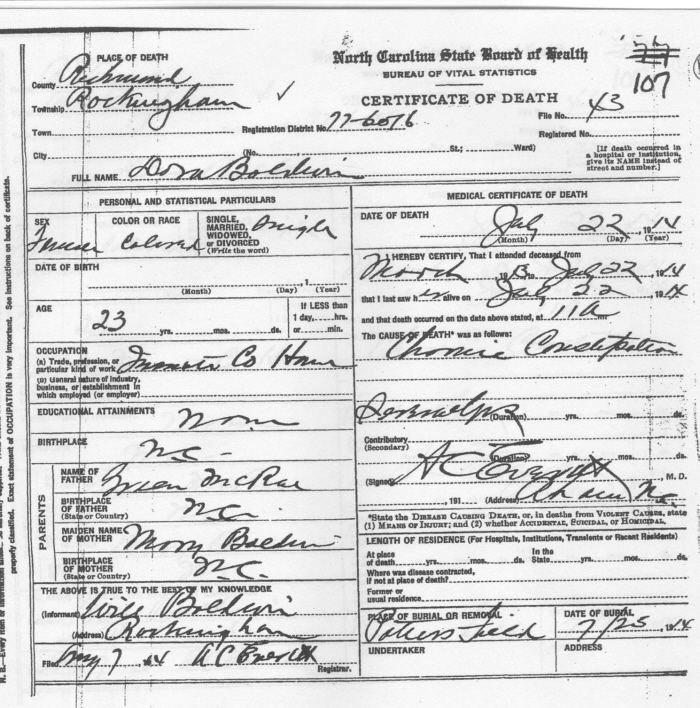 PLACE OF DEATH
County Richmond
Township Rockingham ✓
Town
City
North Carolina State Board of Health
BUREAU OF VITAL STATISTICS
CERTIFICATE OF DEATH
107
Registration District No. 77-6076
File No. 43
Registered No.
(No. , St.; Ward)
[If death occurred in
a hospital or institution,
give its NAME instead of
street and number.]
FULL NAME Dora Baldwin
PERSONAL AND STATISTICAL PARTICULARS
SEX
COLOR OR RACE Colored
SINGLE,
MARRIED,
WIDOWED,
or DIVORCED
(Write the word)
Single
DATE OF BIRTH
(Month) (Day) , 1 (Year)
AGE
23 yrs. mos. ds.
If LESS than
1 day, hrs.
or min.
OCCUPATION
(a) Trade, profession, or
particular kind of work Co Home
(b) General nature of industry,
business, or establishment in
which employed (or employer)
EDUCATIONAL ATTAINMENTS None
BIRTHPLACE N.C.
PARENTS
NAME OF
FATHER McRae
BIRTHPLACE
OF FATHER
(State or Country) N.C.
MAIDEN NAME
OF MOTHER Mary Baldwin
BIRTHPLACE
OF MOTHER
(State or Country) N.C.
THE ABOVE IS TRUE TO THE BEST OF MY KNOWLEDGE
(Informant) Will Baldwin
(Address) Rockingham
Filed 7 14 A C Everett
Registrar.
MEDICAL CERTIFICATE OF DEATH
DATE OF DEATH July 22, 1914
(Month) (Day) (Year)
I HEREBY CERTIFY, That I attended deceased from
March 1913 to July 22 1914
that I last saw her alive on July 22 1914
and that death occurred on the date above stated, at 11 a m.
The CAUSE OF DEATH* was as follows:
Chronic Constipation
(Duration) yrs. mos. ds.
Contributory
(Secondary)
(Duration) yrs. mos. ds.
(Signed) A C Everett, M. D.
, 191 (Address) NC
*State the DISEASE CAUSING DEATH, or, in deaths from VIOLENT CAUSES, state
(1) MEANS OF INJURY; and (2) whether ACCIDENTAL, SUICIDAL, or HOMICIDAL.
LENGTH OF RESIDENCE (For Hospitals, Institutions, Transients or Recent Residents)
At place
of death yrs. mos. ds.
In the
State yrs. mos. ds.
Where was disease contracted,
if not at place of death?
Former or
usual residence
PLACE OF BURIAL OR REMOVAL
Potters field
DATE OF BURIAL
7/23, 1914
UNDERTAKER
ADDRESS
properly classified. Exact statement of OCCUPATION is very important. See instructions on back of certificate.